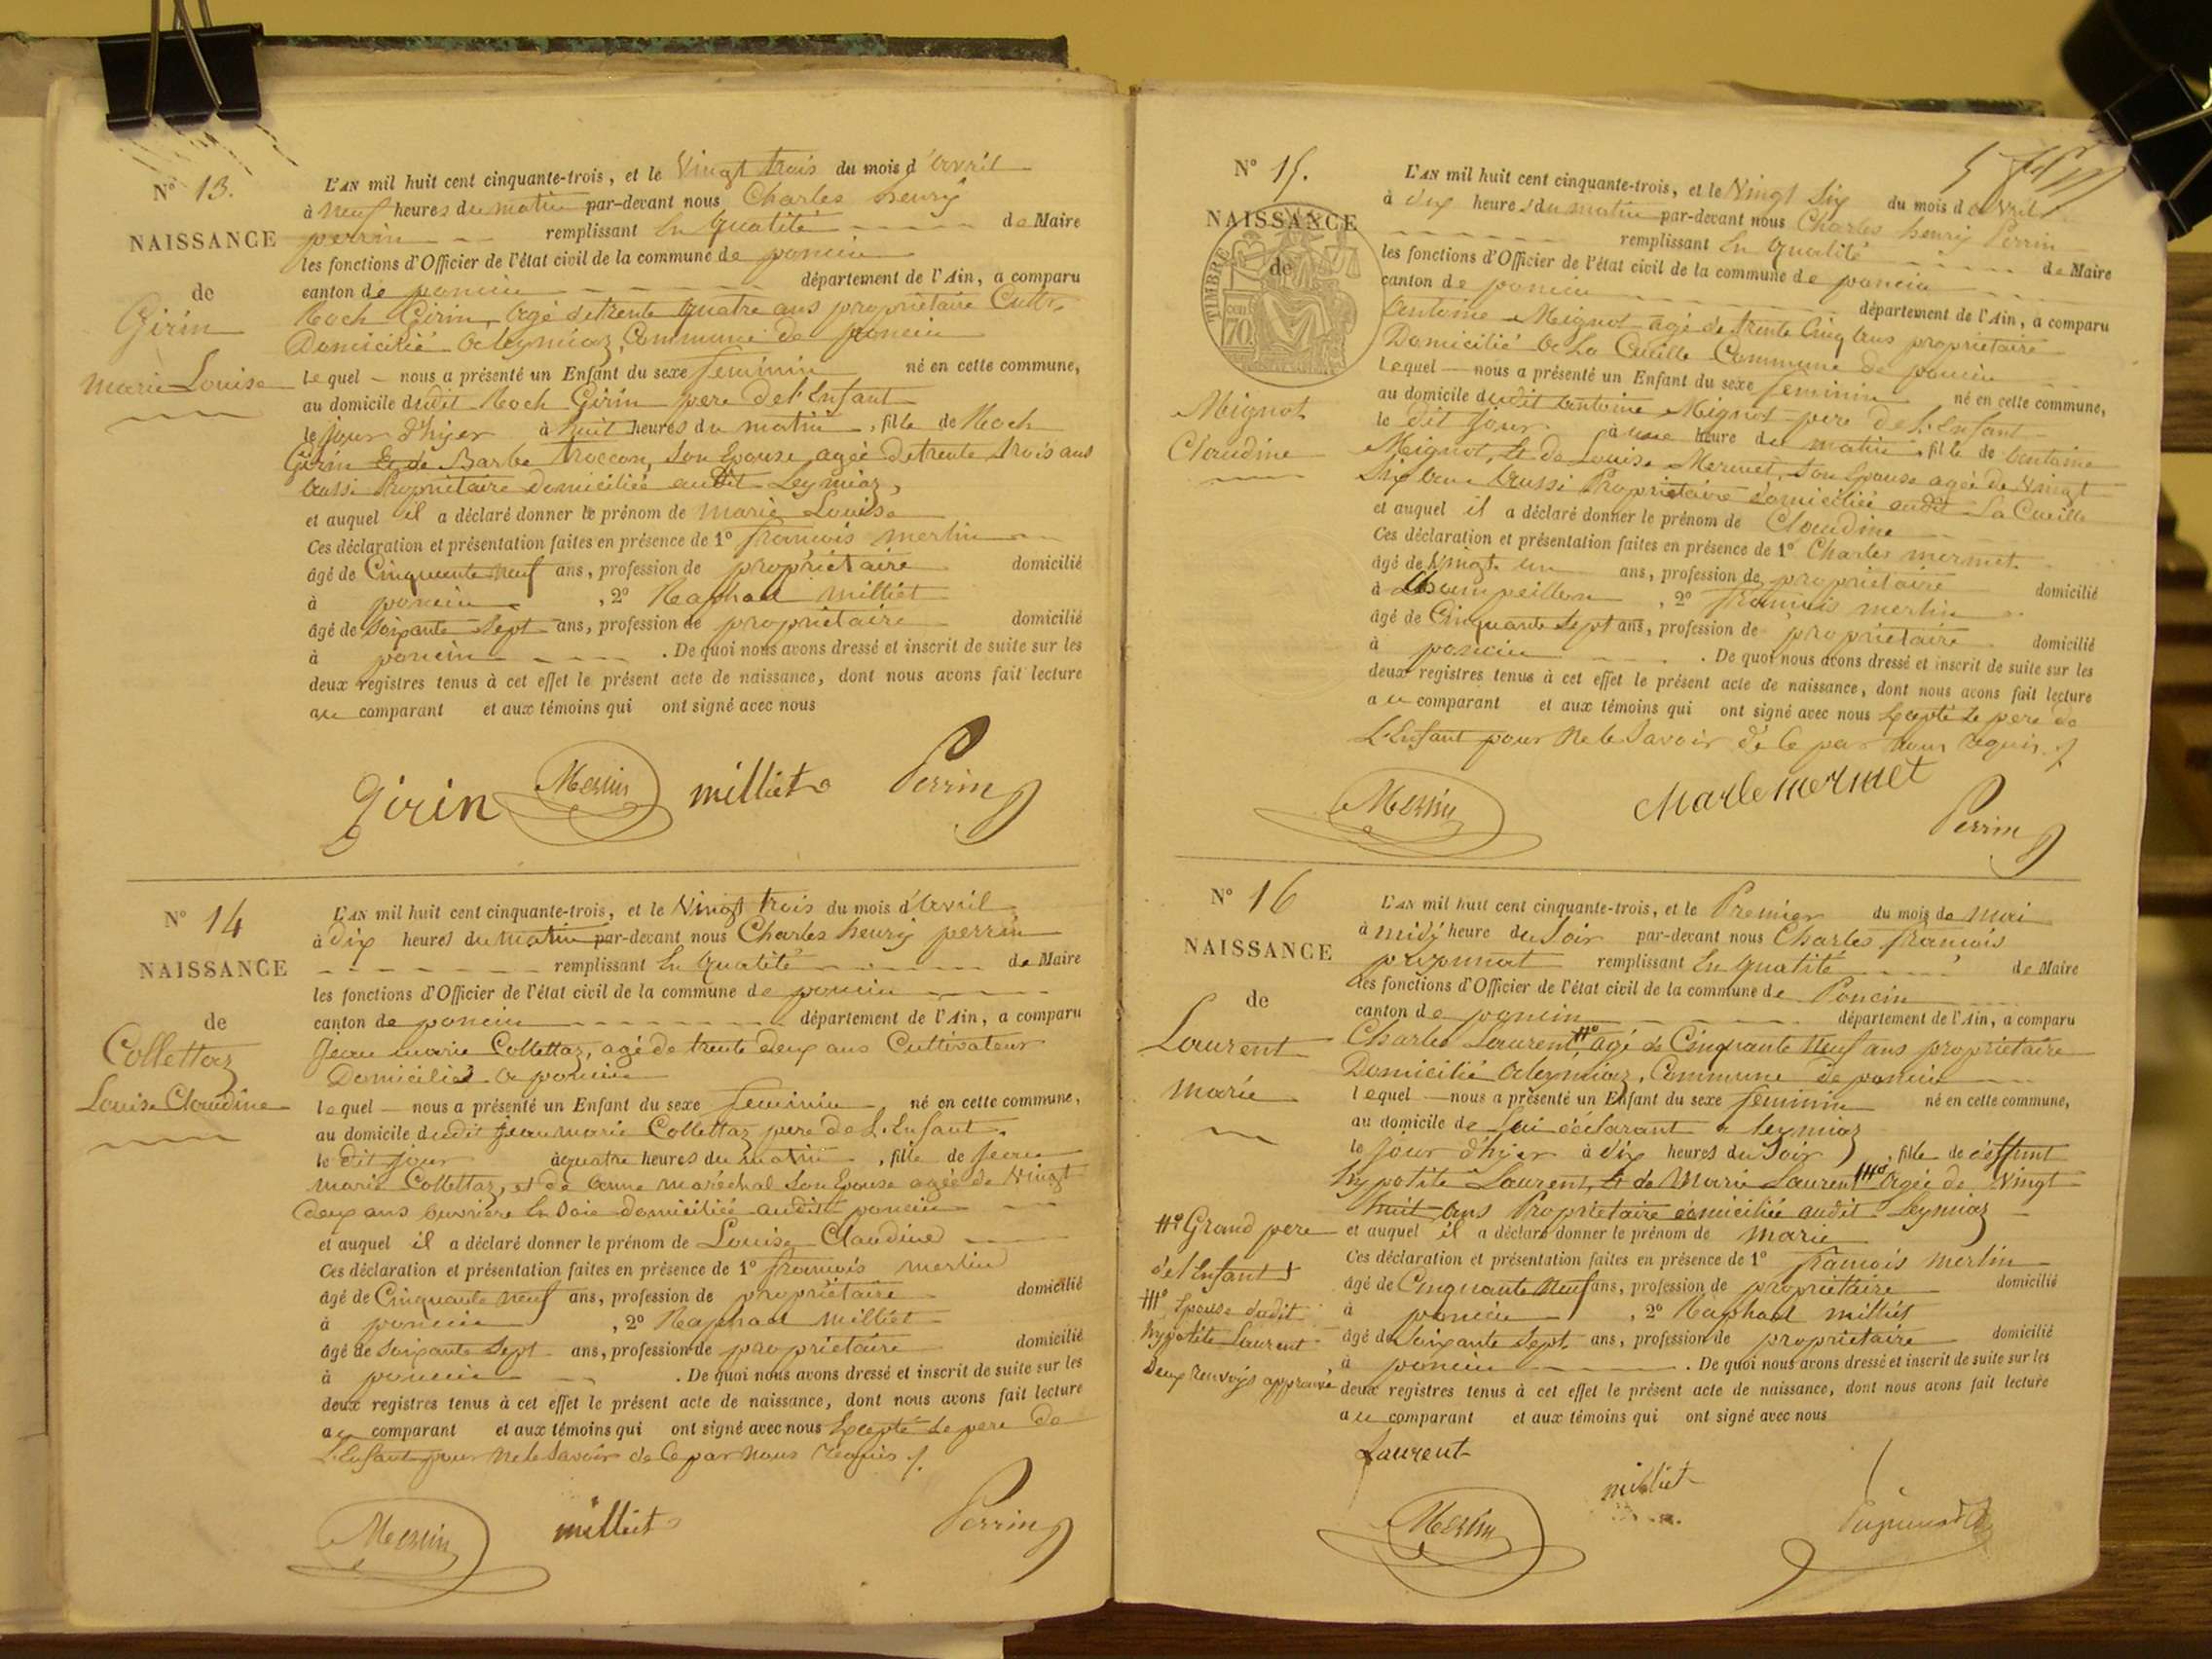 N° 13.
NAISSANCE
de
Girin
Marie Louise
L'AN mil huit cent cinquante-trois, et le Vingt trois du mois d'avril
à neuf heures du matin par-devant nous Charles henry
perrin remplissant En qualité de Maire
les fonctions d'Officier de l'état civil de la commune de poncin
canton de poncin département de l'Ain, a comparu
Roch Girin, agé de trente quatre ans propriétaire Cultr
Domicilié a leymiaz, Commune de poncin
lequel nous a présenté un Enfant du sexe feminin né en cette commune,
au domicile dudit Roch Girin pere de l'Enfant
le jour d'hyer à huit heures du matin, fille de Roch
Girin Et de Barbe troccon, son Epouse agée de trente trois ans
aussi Propriétaire domiciliée audit Leymiaz,
et auquel il a déclaré donner le prénom de Marie Louise
Ces déclaration et présentation faites en présence de 1° francois merlin
âgé de Cinquante neuf ans, profession de propriétaire domicilié
à poncin, 2° Raphael milliet
âgé de Soixante Sept ans, profession de propriétaire domicilié
à poncin . De quoi nous avons dressé et inscrit de suite sur les
deux registres tenus à cet effet le présent acte de naissance, dont nous avons fait lecture
au comparant et aux témoins qui ont signé avec nous
Girin Merlin milliet Perrin
N° 14
NAISSANCE
de
Collettaz
Louise Claudine
L'AN mil huit cent cinquante-trois, et le Vingt trois du mois d'avril
à dix heures du matin par-devant nous Charles henry perrin
remplissant En qualité de Maire
les fonctions d'Officier de l'état civil de la commune de poncin
canton de poncin département de l'Ain, a comparu
Jean marie Collettaz, agé de trente deux ans Cultivateur
Domicilié a poncin
lequel nous a présenté un Enfant du sexe feminin né en cette commune,
au domicile dudit Jean marie Collettaz pere de L'Enfant
le dit jour à quatre heures du matin, fille de Jean
marie Collettaz, et de anne maréchal son Epouse agée de Vingt
deux ans ouvriere En Soie domiciliée audit poncin
et auquel il a déclaré donner le prénom de Louise Claudine
Ces déclaration et présentation faites en présence de 1° francois merlin
âgé de Cinquante neuf ans, profession de propriétaire domicilié
à poncin, 2° Raphael Milliet
âgé de Soixante Sept ans, profession de propriétaire domicilié
à poncin . De quoi nous avons dressé et inscrit de suite sur les
deux registres tenus à cet effet le présent acte de naissance, dont nous avons fait lecture
au comparant et aux témoins qui ont signé avec nous Excepté le pere de
L'Enfant pour ne le Savoir de Ce par nous requis
Merlin milliet Perrin
N° 15.
NAISSANCE
de
TIMBRE
70
Mignot
Claudine
L'AN mil huit cent cinquante-trois, et le Vingt Six du mois d'avril
à dix heures du matin par-devant nous Charles henry Perrin
remplissant En qualité de Maire
les fonctions d'Officier de l'état civil de la commune de poncin
canton de poncin département de l'Ain, a comparu
Antoine Mignot agé de trente Cinq ans propriétaire
Domicilié a La Cueille Commune de poncin
lequel nous a présenté un Enfant du sexe feminin né en cette commune,
au domicile dudit antoine Mignot pere de L'Enfant
le dit jour à une heure du matin, fille de antoine
Mignot, Et de Louise Mermet, Son Epouse agée de Vingt
Six ans aussi Propriétaire domiciliée audit La Cueille
et auquel il a déclaré donner le prénom de Claudine
Ces déclaration et présentation faites en présence de 1° Charles mermet
âgé de Vingt un ans, profession de propriétaire domicilié
à Champeillon, 2° francois merlin
âgé de Cinquante Sept ans, profession de propriétaire domicilié
à poncin . De quoi nous avons dressé et inscrit de suite sur les
deux registres tenus à cet effet le présent acte de naissance, dont nous avons fait lecture
au comparant et aux témoins qui ont signé avec nous Excepté le pere de
L'Enfant pour Ne le Savoir de Ce par nous requis
Merlin Charle mermet
Perrin
N° 16
NAISSANCE
de
Laurent
marie
L'AN mil huit cent cinquante-trois, et le Premier du mois de mai
à midy heure du Soir par-devant nous Charles francois
remplissant En qualité de Maire
les fonctions d'Officier de l'état civil de la commune de Poncin
canton de poncin département de l'Ain, a comparu
Charles Laurent, agé de Cinquante neuf ans propriétaire
Domicilié a leymiaz, Commune de poncin
lequel nous a présenté un Enfant du sexe feminin né en cette commune,
au domicile de lui déclarant a leymiaz
le jour d'hyer à dix heures du Soir, fille de deffunt
hypolite Laurent, Et de Marie Laurent agée de Vingt
huit ans Propriétaire domiciliée audit Leymiaz
et auquel il a déclaré donner le prénom de marie
Ces déclaration et présentation faites en présence de 1° francois merlin
âgé de Cinquante neuf ans, profession de propriétaire domicilié
à poncin, 2° Raphael milliet
âgé de Soixante Sept ans, profession de propriétaire domicilié
à poncin . De quoi nous avons dressé et inscrit de suite sur les
deux registres tenus à cet effet le présent acte de naissance, dont nous avons fait lecture
au comparant et aux témoins qui ont signé avec nous
Grand pere
de l'Enfant
Epouse dudit
hypolite Laurent
Deux renvoys approuvé
Laurent
milliet
Merlin